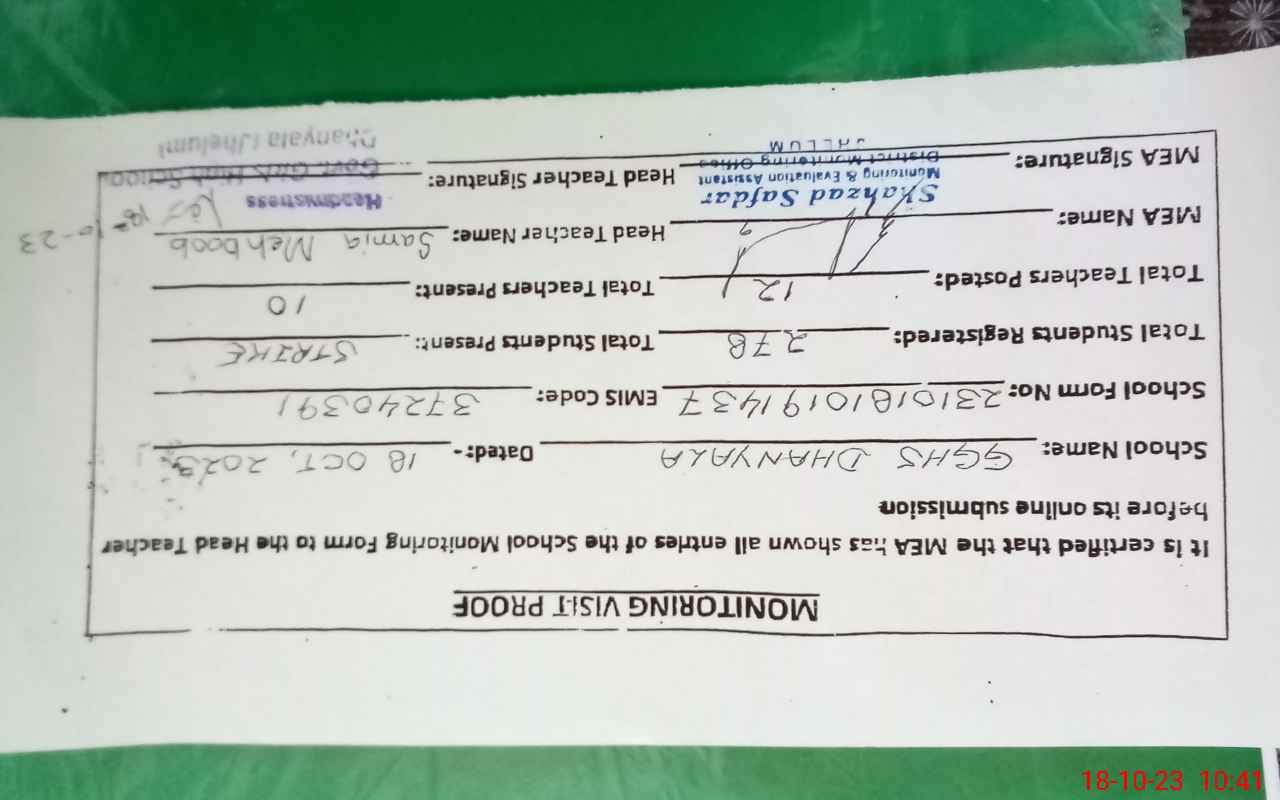 MONITORING VISIT PROOF
It is certified that the MEA has shown all entries of the School Monitoring Form to the Head Teacher
before its online submission
School Name: GGHS DHANYALA Dated:- 18 OCT, 2023
School Form No: 23101810191437 EMIS Code: 37240391
Total Students Registered: 278 Total Students Present: STRIKE
Total Teachers Posted: 12 Total Teachers Present: 10
MEA Name: Head Teacher Name: Samia Mehboob
18-10-23
Shahzad Safdar Headmistress
MEA Signature: Monitoring & Evaluation Assistant Head Teacher Signature: Govt. Girls High School
District Monitoring Office Dhanyala (Jhelum)
JHELUM
18-10-23 10:41